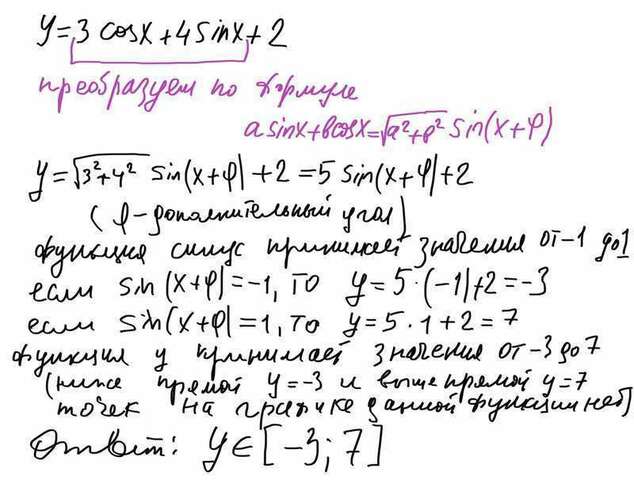 y=3 cosx+4 sinx+2
преобразуем по формуле
a sinx+bcosx=√a²+b² sin(x+φ)
y=√3²+4² sin(x+φ)+2=5 sin(x+φ)+2
(φ-дополнительный угол)
функция синус принимает значения от-1 до1
если sin(x+φ)=-1, то y=5·(-1)+2=-3
если sin(x+φ)=1, то y=5·1+2=7
функция y принимает значения от-3 до 7
(ниже прямой y=-3 и выше прямой y=7
точек на графике данной функции нет)
Ответ: y∈[-3;7]